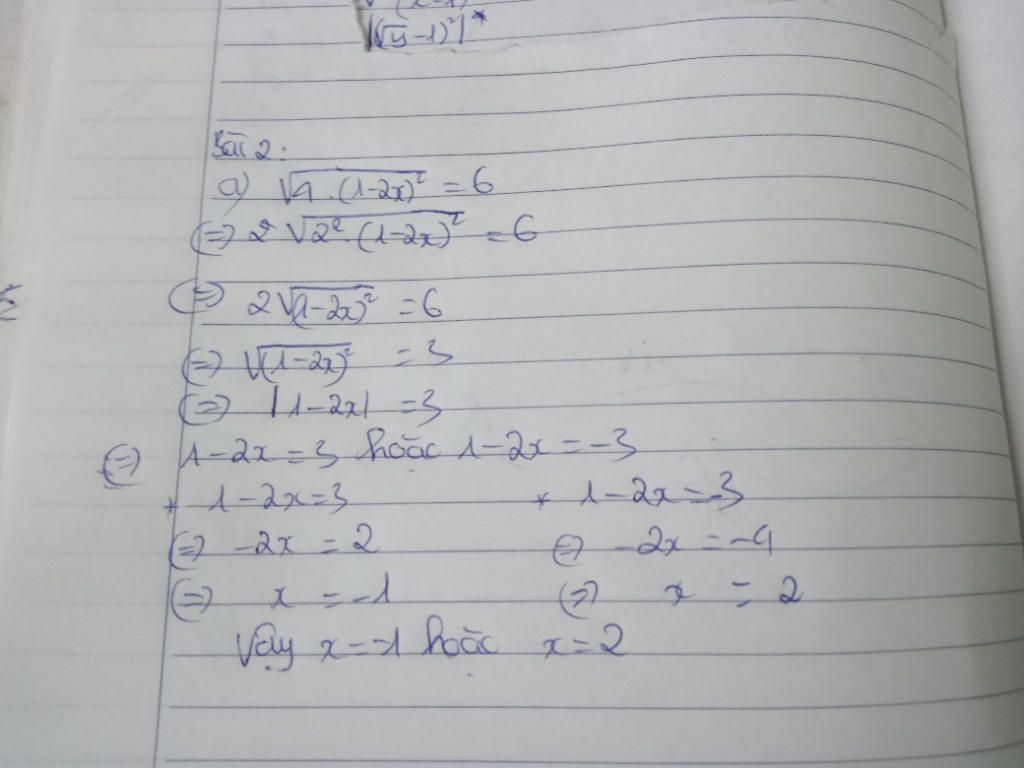 |(√y-1)²|*
Bài 2:
a) √4.(1-2x)² = 6
(=) 2√2².(1-2x)² = 6
(=) 2√(1-2x)² = 6
(=) √(1-2x)² = 3
(=) |1-2x| = 3
(=) 1-2x=3 hoặc 1-2x=-3
* 1-2x=3 * 1-2x=-3
(=) -2x = 2 (=) -2x = -4
(=) x = -1 (=) x = 2
Vậy x=-1 hoặc x=2